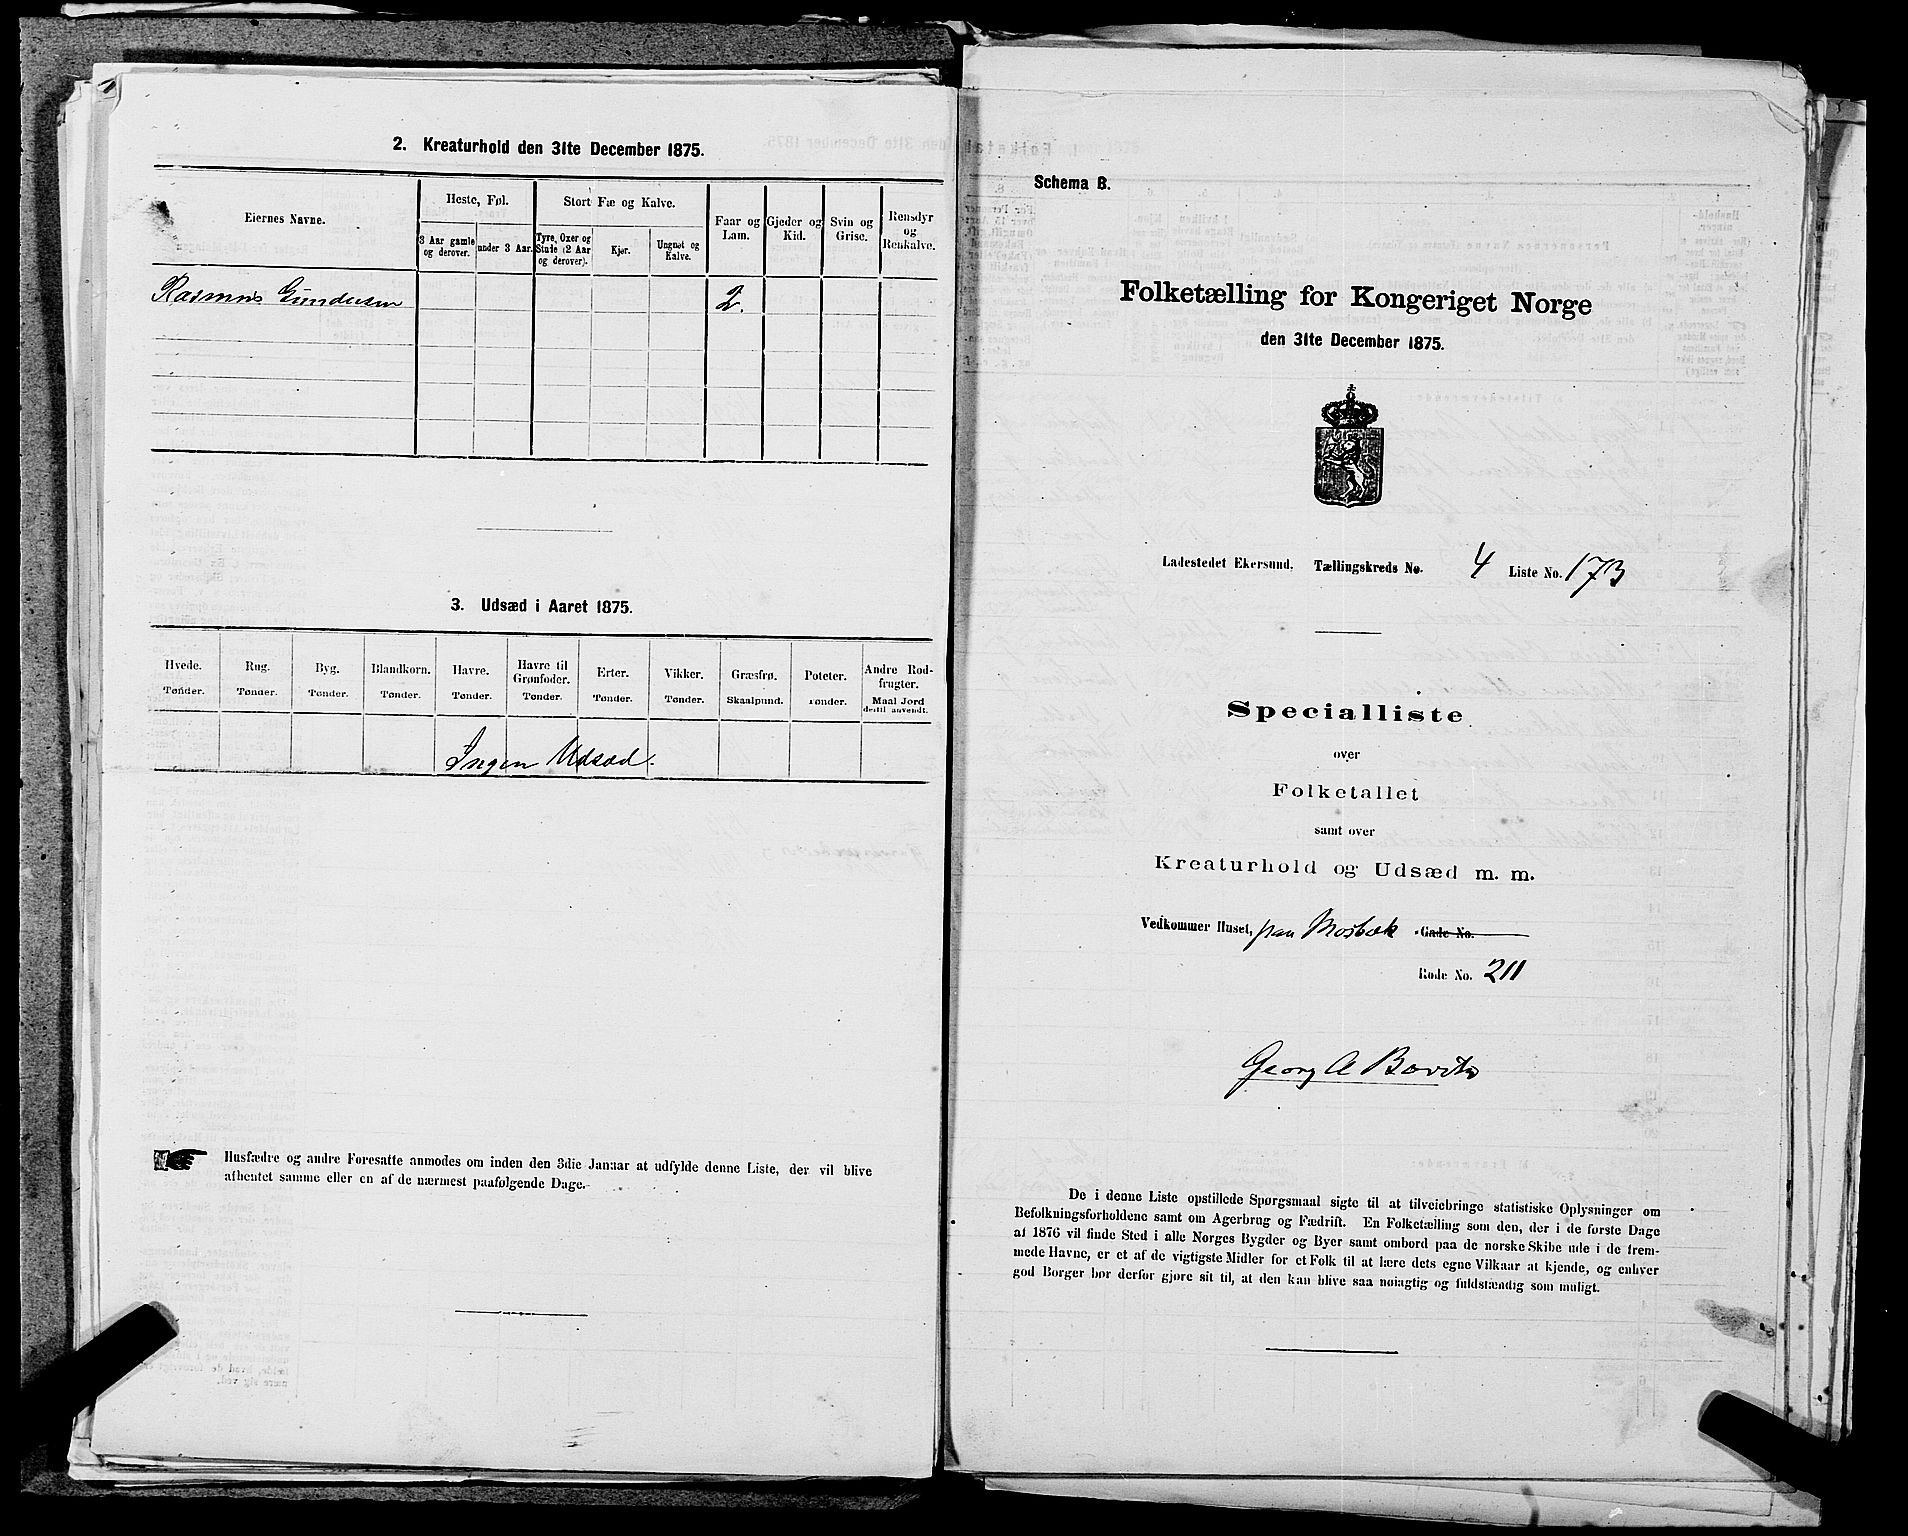 2. Kreaturhold den 31te December 1875.
Eiernes Navne.
Heste, Føl.
Stort Fæ og Kalve.
Faar og Lam.
Gjeder og Kid.
Svin og Grise.
Rensdyr og Renkalve.
3 Aar gamle og derover.
under 3 Aar.
Tyre, Oxer og Stude (2 Aar og derover).
Kjør.
Ungnøt og Kalve.
Rasmus Gundersen 2.
3. Udsæd i Aaret 1875.
Hvede. Rug. Byg. Blandkorn. Havre. Havre til Grønfoder. Erter. Vikker. Græsfrø. Poteter. Andre Rodfrugter.
Tønder. Tønder. Tønder. Tønder. Tønder. Tønder. Tønder. Tønder. Skaalpund. Tønder. Maal Jord dertil anvendt.
Ingen Udsæd.
Husfædre og andre Foresatte anmodes om inden den 3die Januar at udfylde denne Liste, der vil blive
afhentet samme eller en af de nærmest paafølgende Dage.
Schema B.
Folketælling for Kongeriget Norge
den 31te December 1875.
Ladestedet Ekersund. Tællingskreds No. 4 Liste No. 173
Specialliste
over
Folketallet
samt over
Kreaturhold og Udsæd m. m.
Vedkommer Huset, paa Mosbæk Gade No.
Rode No. 211
Georg A
De i denne Liste opstillede Spørgsmaal sigte til at tilveiebringe statistiske Oplysninger om
Befolkningsforholdene samt om Agerbrug og Fædrift. En Folketælling som den, der i de første Dage
af 1876 vil finde Sted i alle Norges Bygder og Byer samt ombord paa de norske Skibe ude i de frem-
mede Havne, er et af de vigtigste Midler for et Folk til at lære dets egne Vilkaar at kjende, og enhver
god Borger bør derfor gjøre sit til, at den kan blive saa nøiagtig og fuldstændig som muligt.